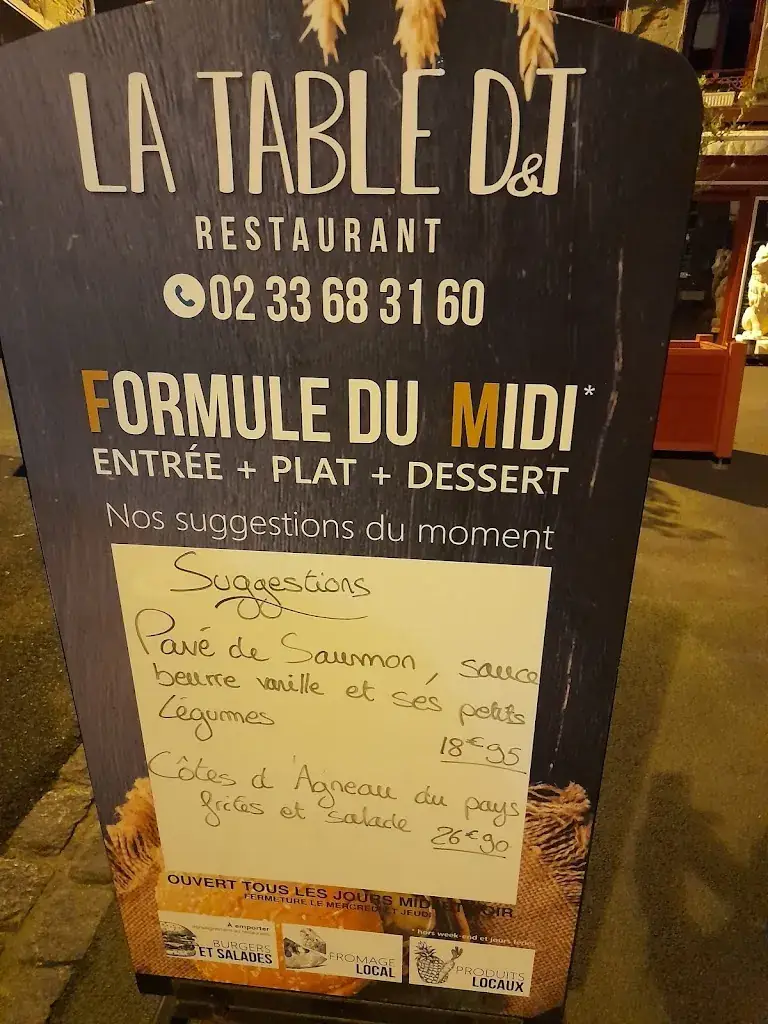 LA TABLE D&T
RESTAURANT
02 33 68 31 60
FORMULE DU MIDI*
ENTRÉE + PLAT + DESSERT
Nos suggestions du moment
Suggestions
Pavé de Saumon, sauce
beurre vanille et ses petits
légumes
18€95
Côtes d'Agneau du pays
frites et salade 26€90
OUVERT TOUS LES JOURS MIDI ET SOIR
FERMETURE LE MERCREDI ET JEUDI
* hors week-end et jours fériés
À emporter
BURGERS
ET SALADES
FROMAGE
LOCAL
PRODUITS
LOCAUX